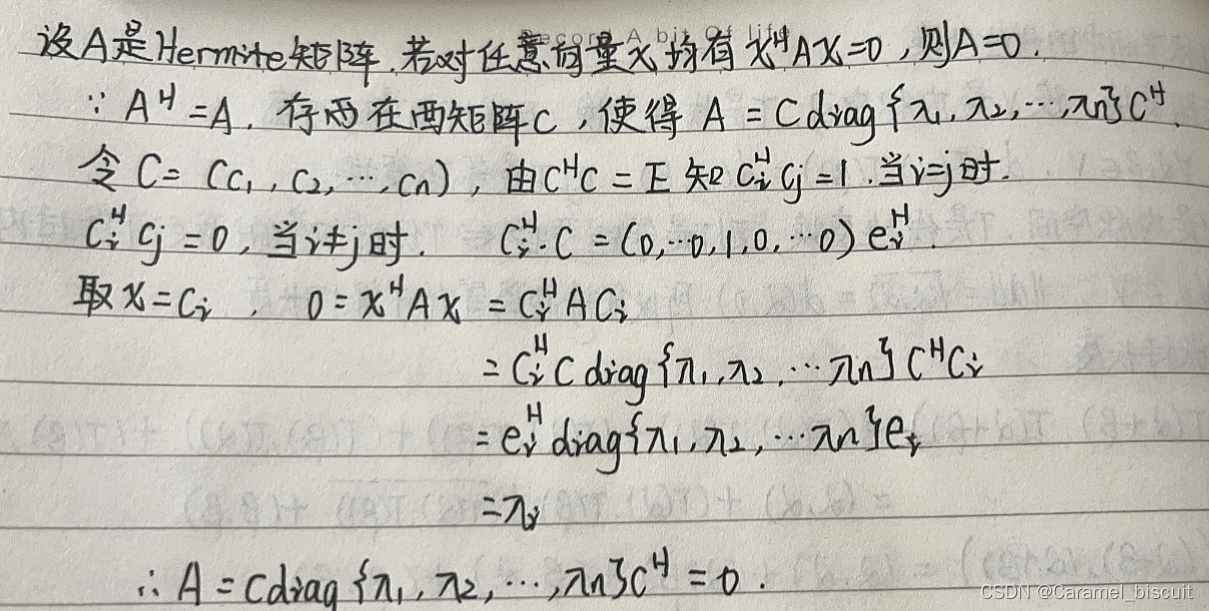 Record A bit Of life
设A是Hermite矩阵.若对任意向量x均有xᴴAx=0,则A=0.
∵ Aᴴ=A. 存酉在酉矩阵C,使得 A = C diag{λ₁,λ₂,⋯,λn}Cᴴ.
令 C= (c₁,c₂,⋯,cn),由CᴴC=E知 cᵢᴴcⱼ=1.当i=j时.
cᵢᴴcⱼ=0,当i≠j时. cᵢᴴ·C=(0,⋯0,1,0,⋯0) eᵢᴴ.
取x=cᵢ. 0=xᴴAx = cᵢᴴAcᵢ
=cᵢᴴC diag{λ₁,λ₂,⋯λn}Cᴴcᵢ
=eᵢᴴ diag{λ₁,λ₂,⋯λn}eᵢ
=λᵢ
∴ A = C diag{λ₁,λ₂,⋯,λn}Cᴴ=0.
CSDN @Caramel_biscuit